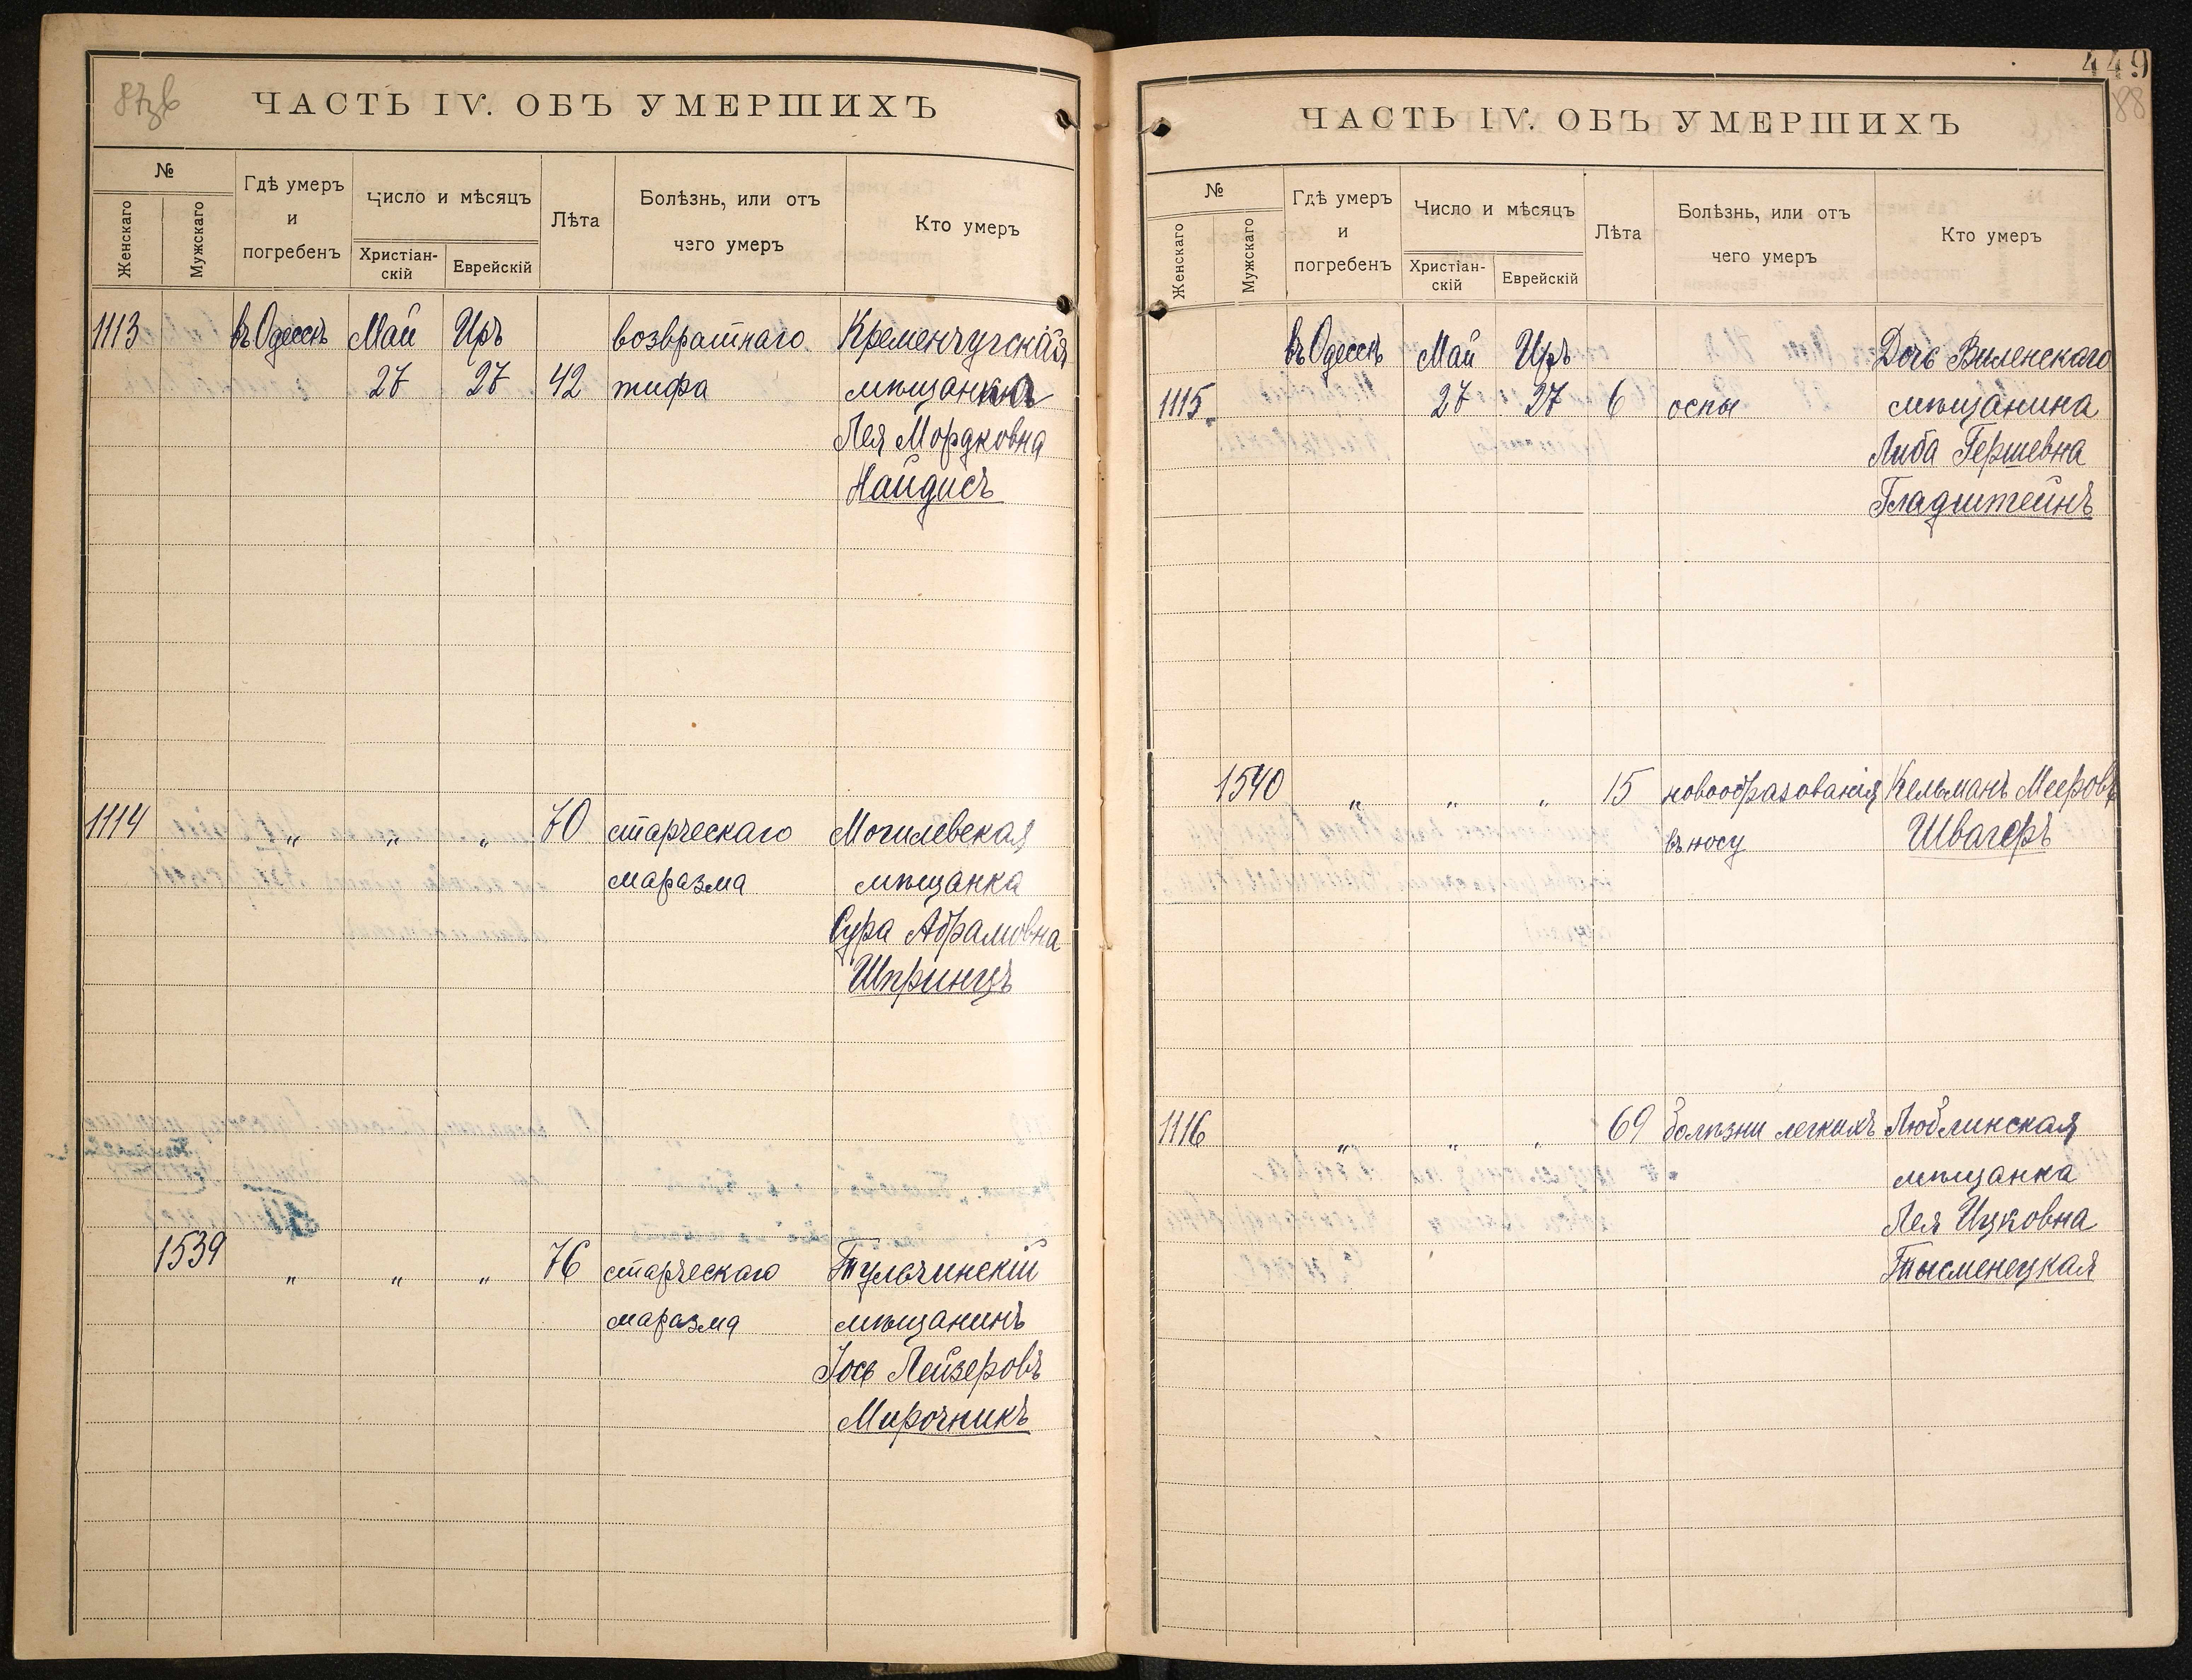 87об
ЧАСТЬ IV. ОБЪ УМЕРШИХЪ
№
Женскаго
Мужскаго
Гдѣ умеръ
и
погребенъ
Число и мѣсяцъ
Христіан-
скій
Еврейскій
Лѣта
Болѣзнь, или отъ
чего умеръ
Кто умеръ
1113 въ Одессѣ Май Иръ возвратнаго Кременчугская
27 27 42 тифа мѣщанка
Лея Мордковна
Найдисъ
1114 " " " 70 старческаго Могилевская
маразма мѣщанка
Сура Абрамовна
Шпринцъ
1539 " " " 76 старческаго Тульчинскій
маразма мѣщанинъ
Іось Лейзеровъ
Мирочникъ
449
88
ЧАСТЬ IV. ОБЪ УМЕРШИХЪ
№
Женскаго
Мужскаго
Гдѣ умеръ
и
погребенъ
Число и мѣсяцъ
Христіан-
скій
Еврейскій
Лѣта
Болѣзнь, или отъ
чего умеръ
Кто умеръ
въ Одессѣ Май Иръ Дочь Виленскаго
1115. 27 27 6 оспы мѣщанина
Либа Гершевна
Гладштейнъ
1540 " " " 15 новообразованія Кельманъ Мееровъ
въ носу Швагеръ
1116 " " " 69 болѣзни легкихъ Люблинская
мѣщанка
Лея Ицковна
Тысменецкая